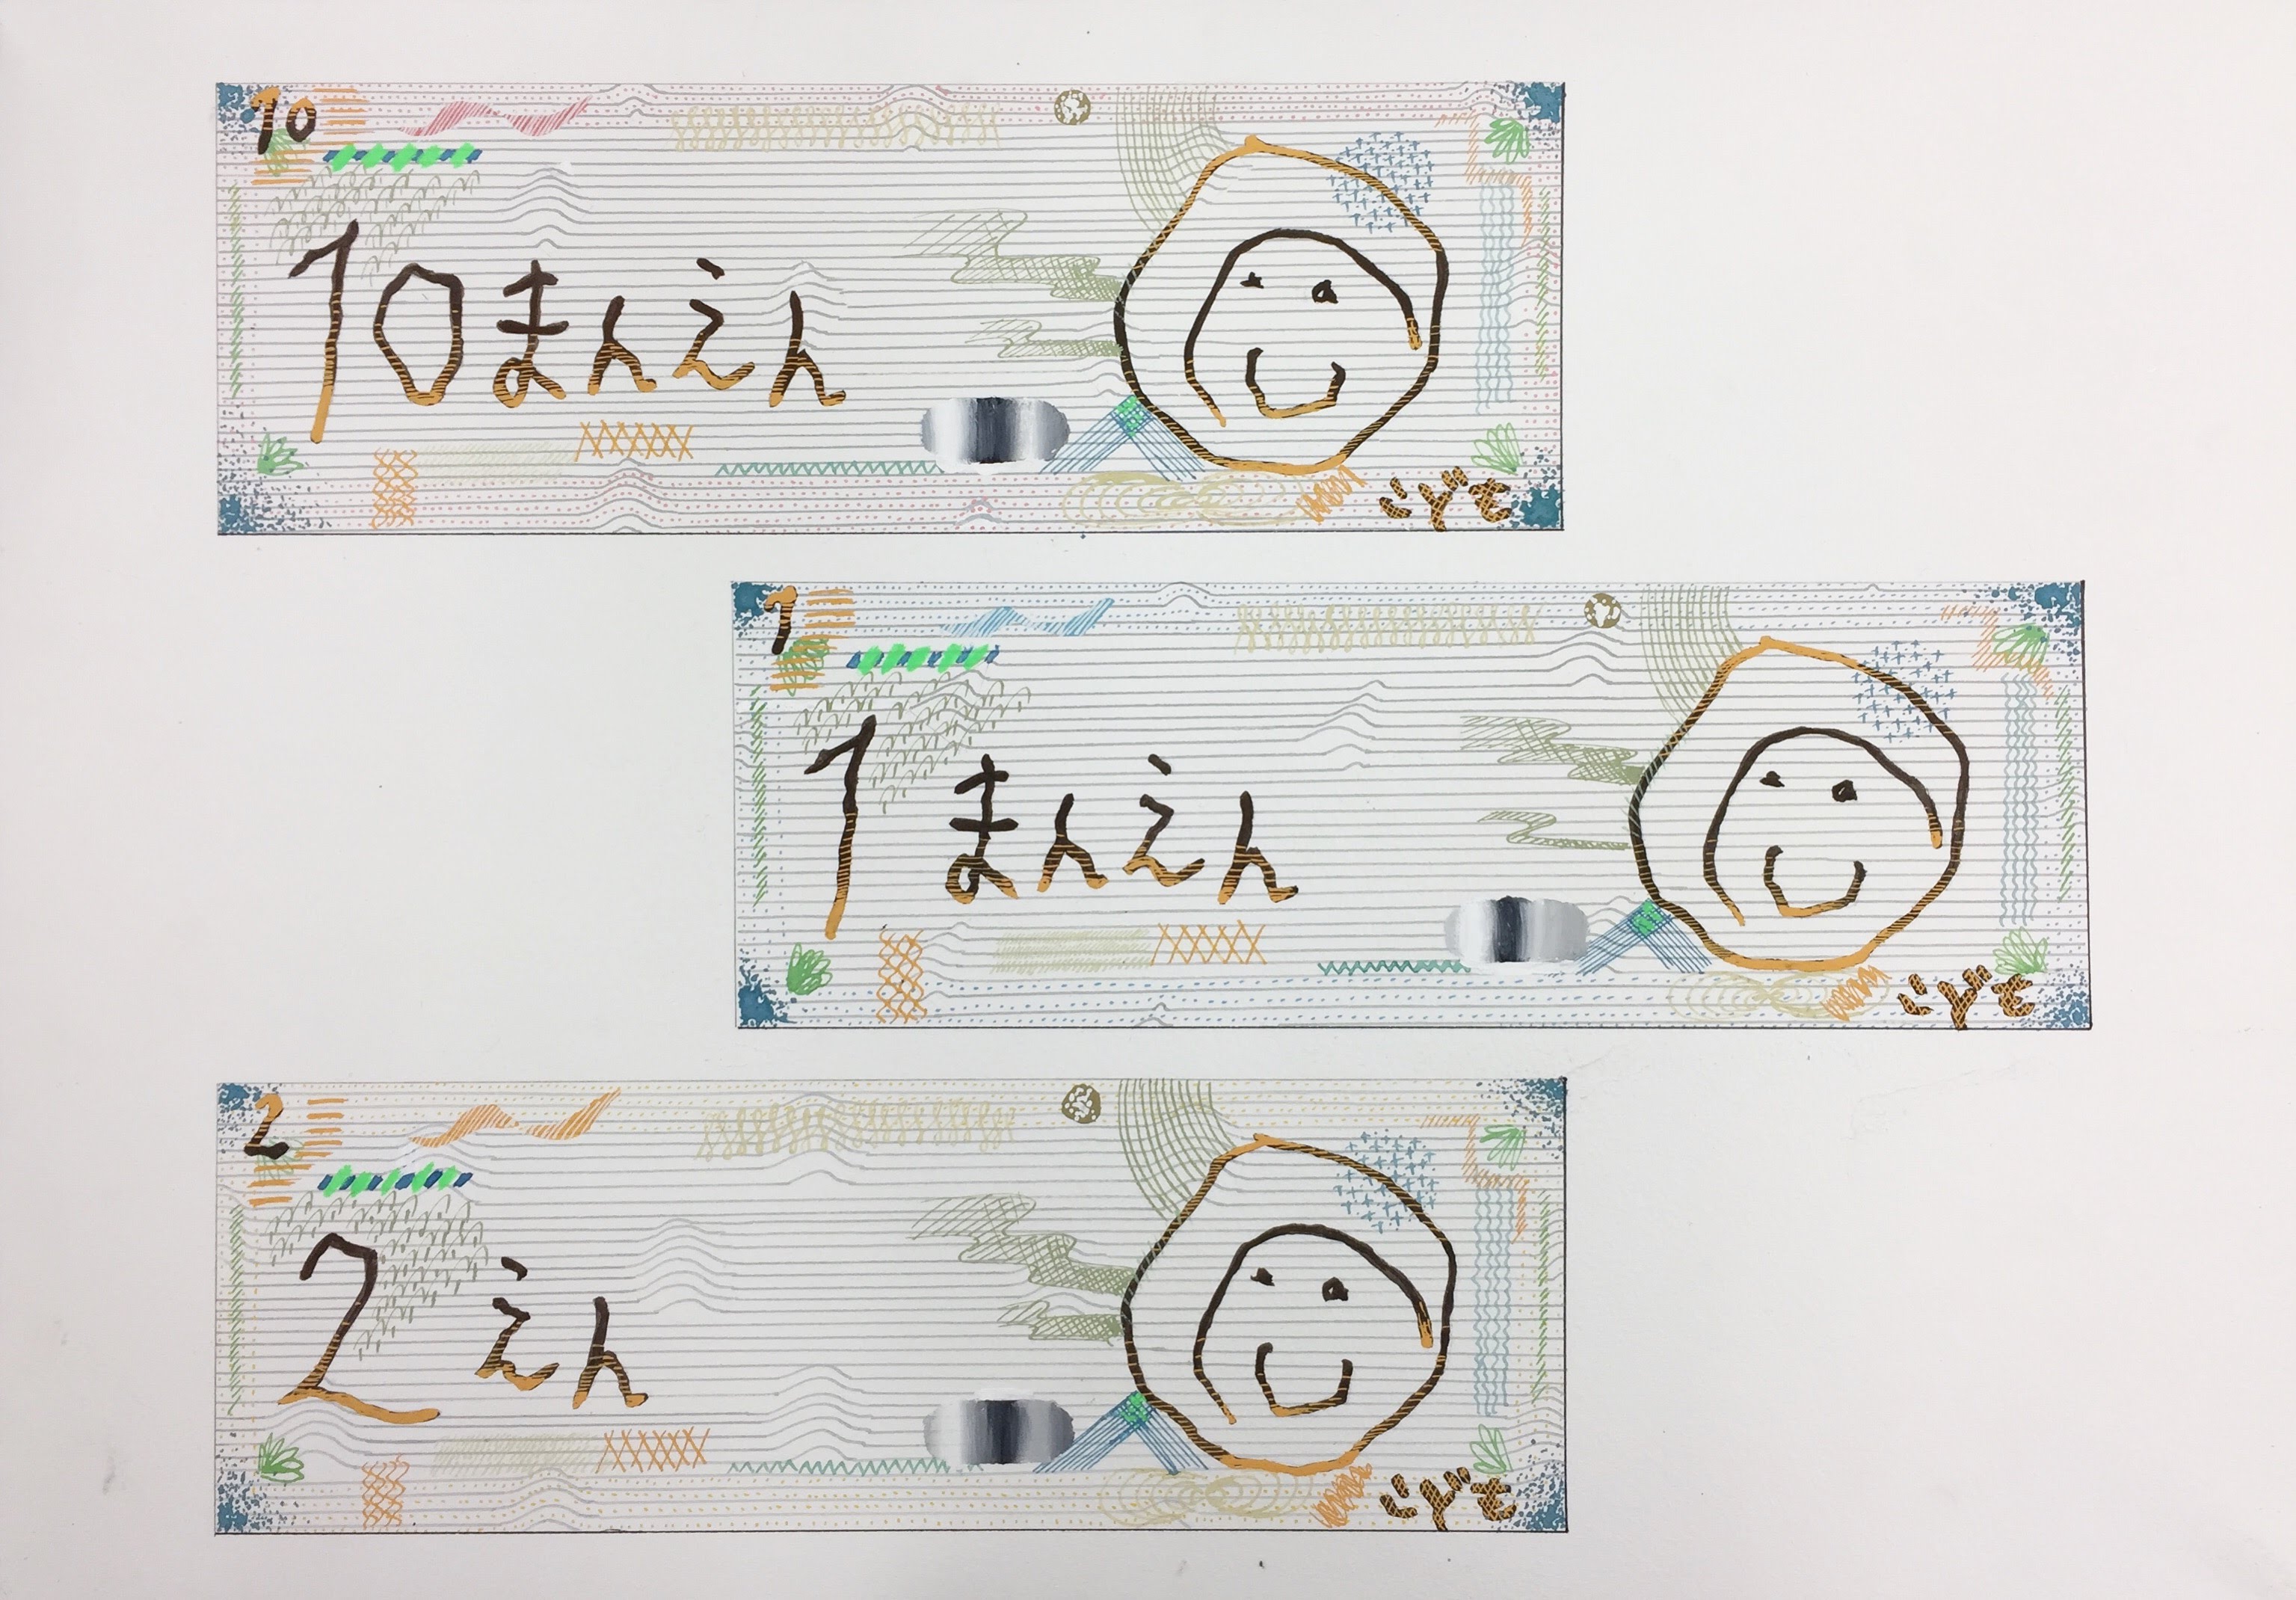 10
10まんえん
こども
1
1まんえん
こども
2
2えん
こども